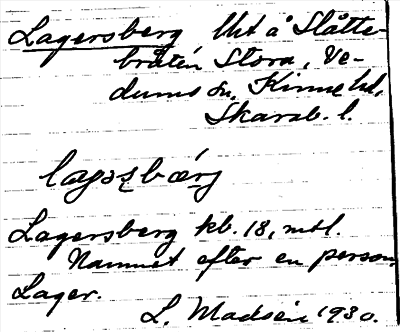 Lagersberg Uht å Slåtte-
bråten Stora, Ve-
dums sn, Kinne hd,
Skarab. l.
Lagersberg kb. 18, mtl.
Namnet efter en person
Lager.
L. Madsén 1930.